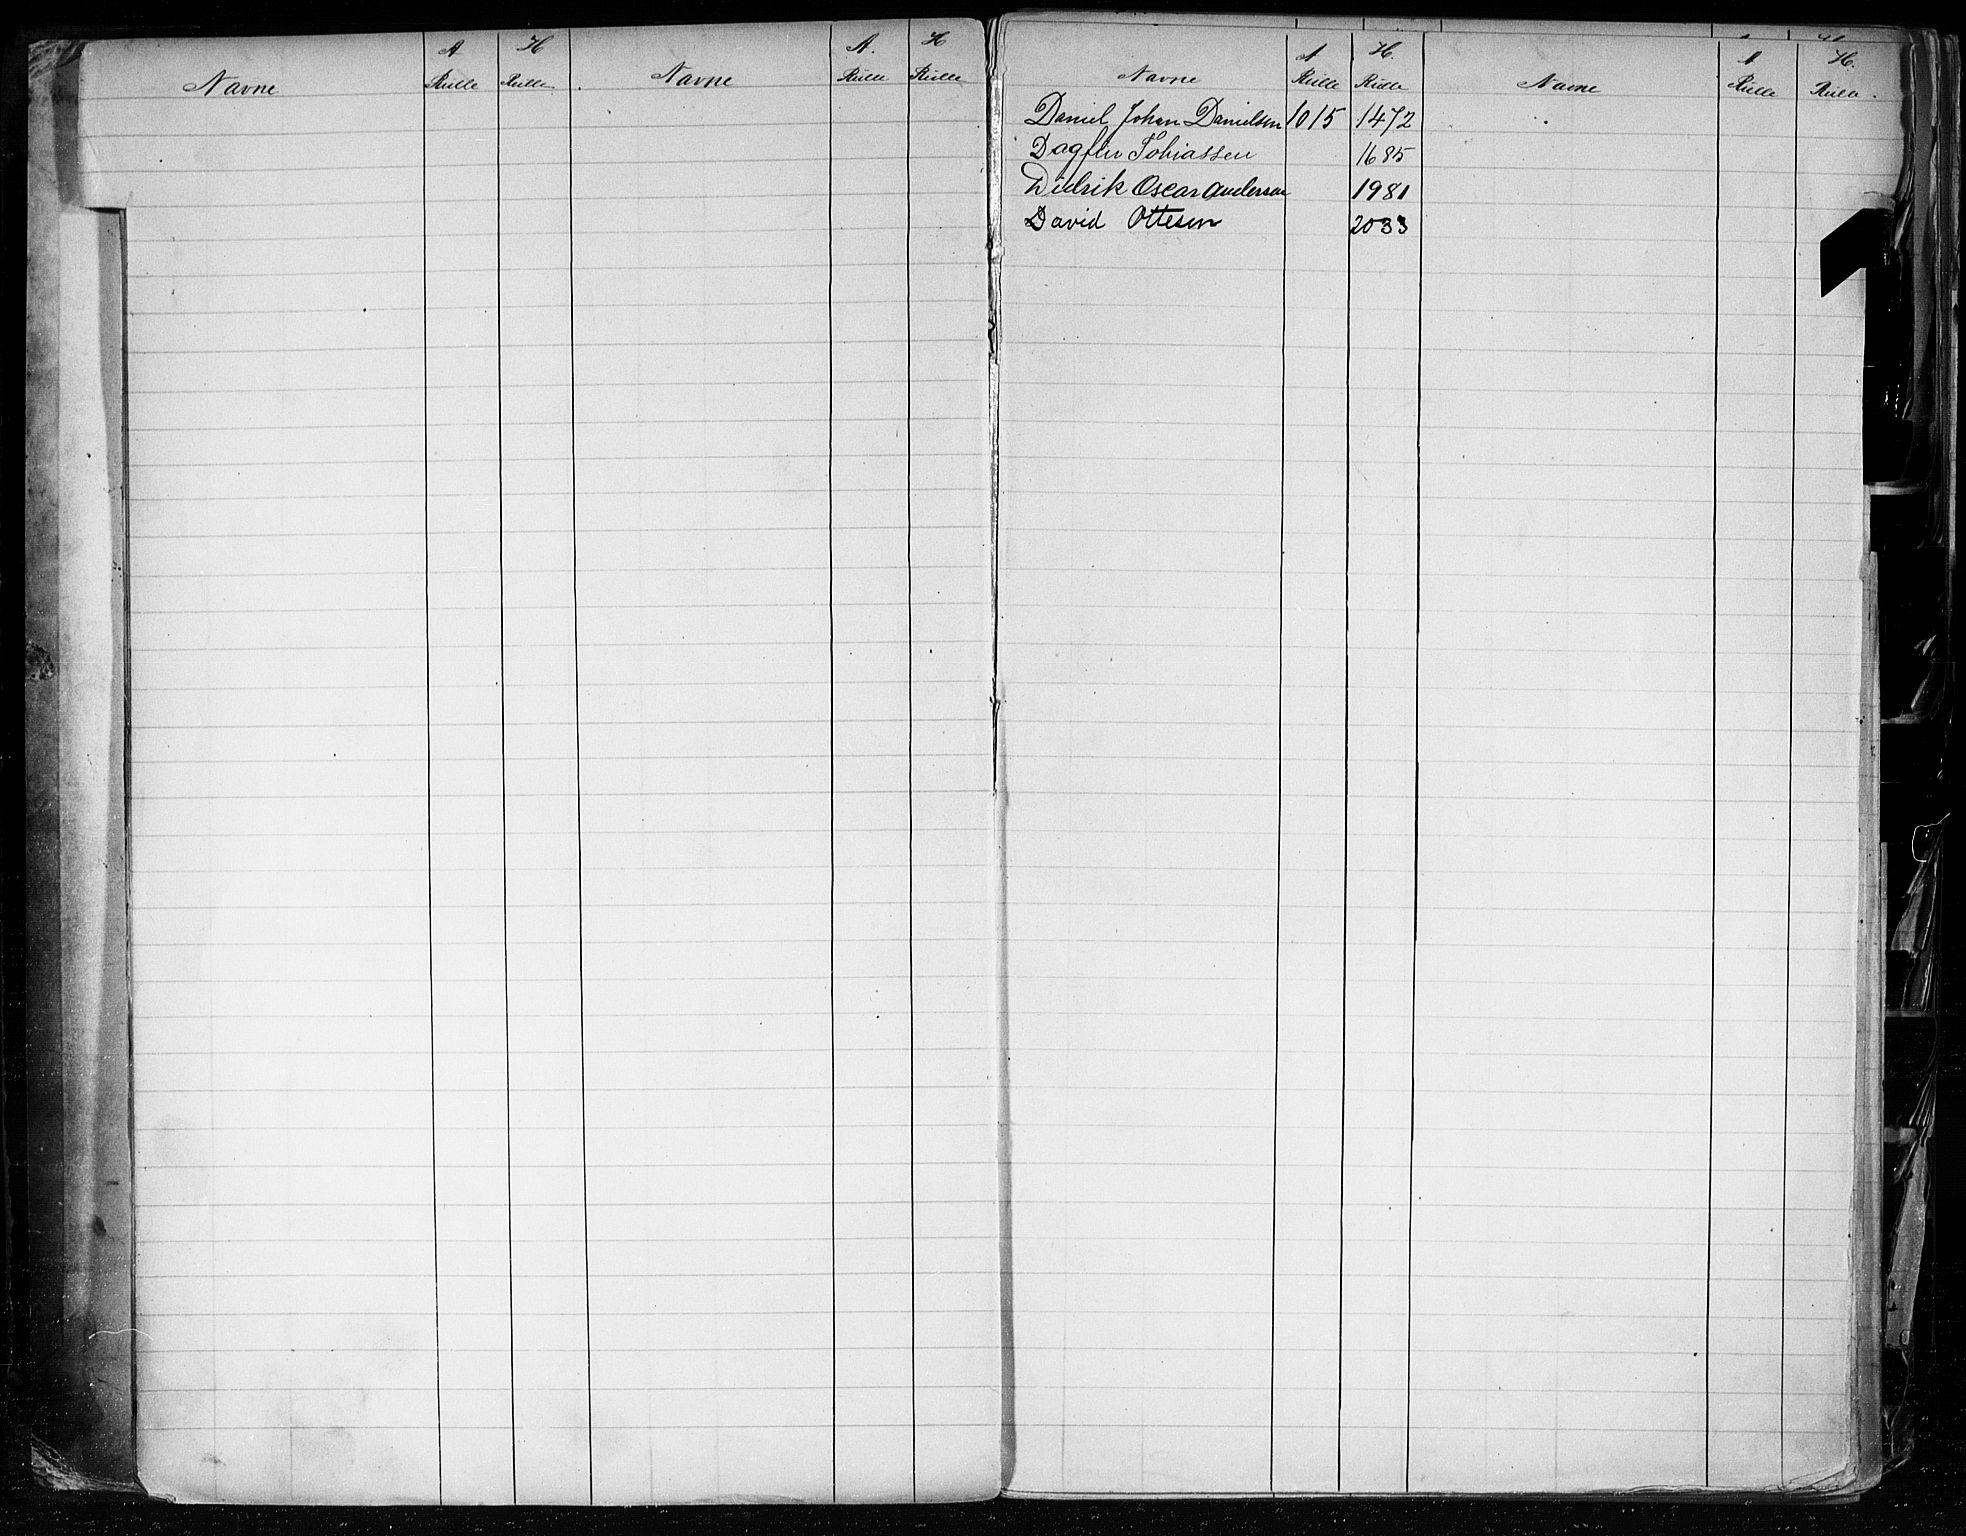 A H A. H
Navne Rulle Rulle Navne Rulle Rulle
A H. A H.
Navne Rulle Rulle Navne Rulle Rulle.
Daniel Johan Danielsen 1015 1472
Dagfin Tobiassen 1685
Didrik Oscar Andersen 1981
David Ottesen 2033